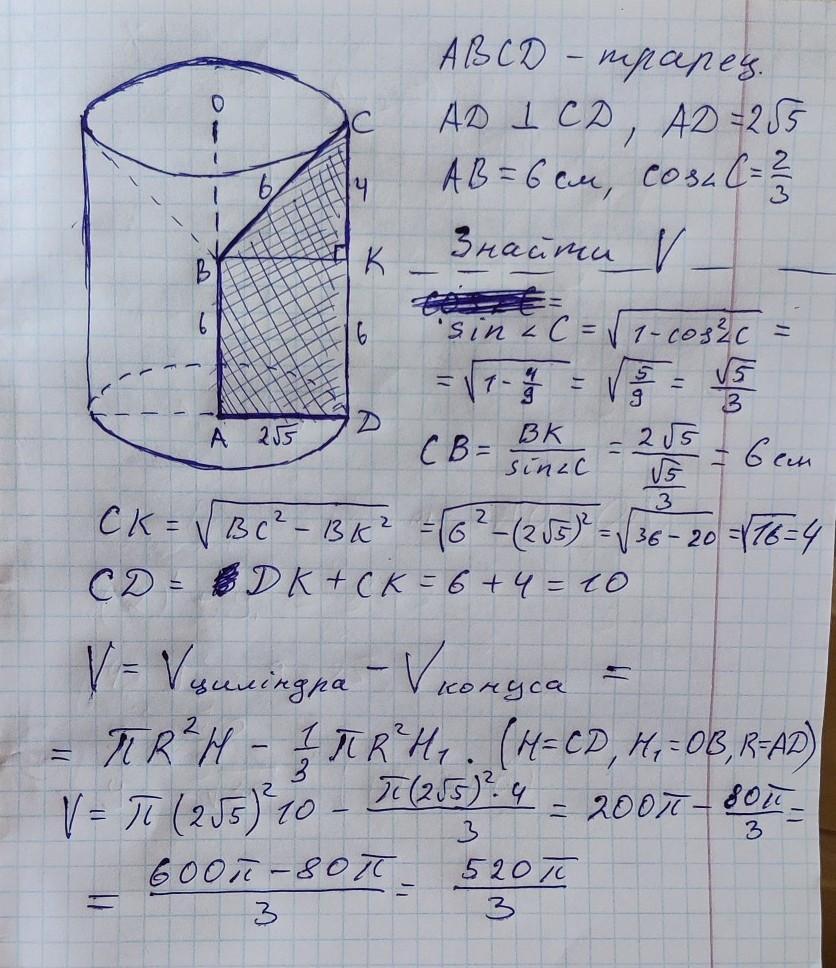 ABCD - трапец.
AD ⊥ CD, AD = 2√5
AB = 6 см, cos∠C = 2/3
Знайти V
sin∠C = √(1 - cos²∠C) =
= √(1 - 4/9) = √(5/9) = √5/3
CB = BK/sin∠C = 2√5/(√5/3) = 6 см
O
C
6
4
B
K
6
6
A
2√5
D
CK = √(BC² - BK²) = √(6² - (2√5)²) = √(36 - 20) = √16 = 4
CD = DK + CK = 6 + 4 = 10
V = V циліндра - V конуса =
= πR²H - 1/3 πR²H₁. (H=CD, H₁=OB, R=AD)
V = π(2√5)²10 - π(2√5)²·4/3 = 200π - 80π/3 =
= (600π - 80π)/3 = 520π/3